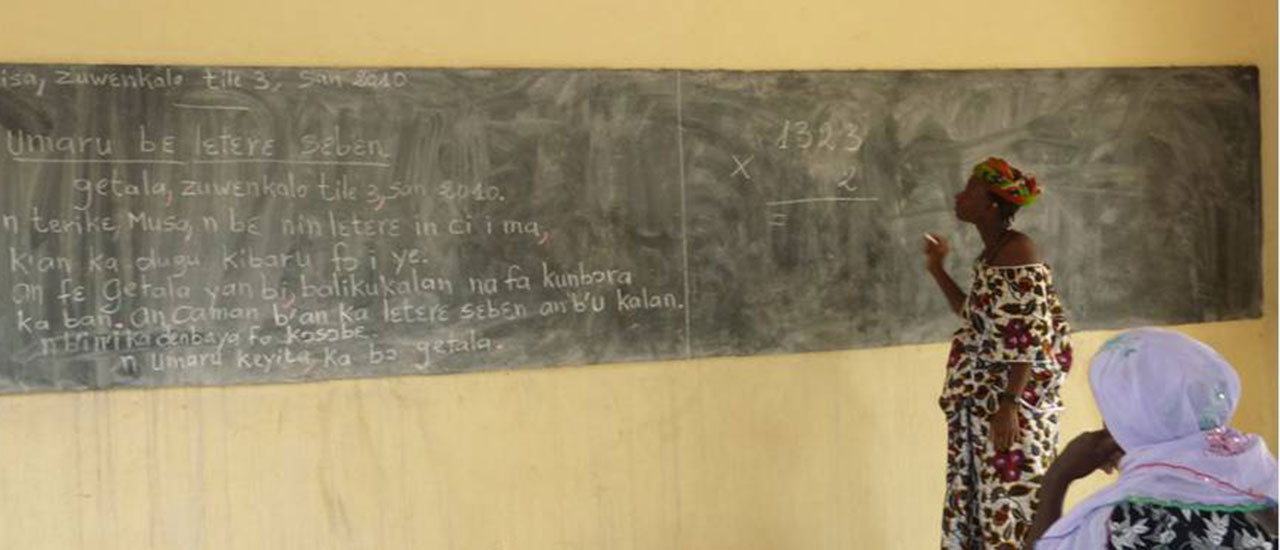 isa, zuwɛnkalo tile 3, san 2010
Umaru bɛ lɛtɛrɛ sɛbɛn
getala, zuwɛnkalo tile 3, san 2010.
n tɛrikɛ Musa, n bɛ nin lɛtɛrɛ in ci i ma,
k'an ka dugu kibaru fɔ i ye.
an fɛ getala yan bi, balikukalan na fa kunbɔra
ka ban. an caman b'an ka lɛtɛrɛ sɛbɛn an b'u kalan.
n b'i ni i ka denbaya fo kosɔbɛ.
n Umaru keyita, ka bɔ getala.
1323
x 2
=